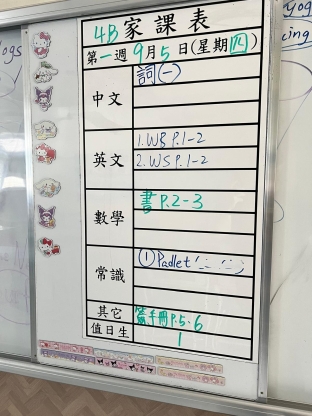 4B家課表
第一週9月5日(星期四)
中文
詞(一)
英文
1. WB P.1-2
2. WS P.1-2
數學
書 P.2-3
常識
① Padlet
其它
手冊P.5-6
值日生
1